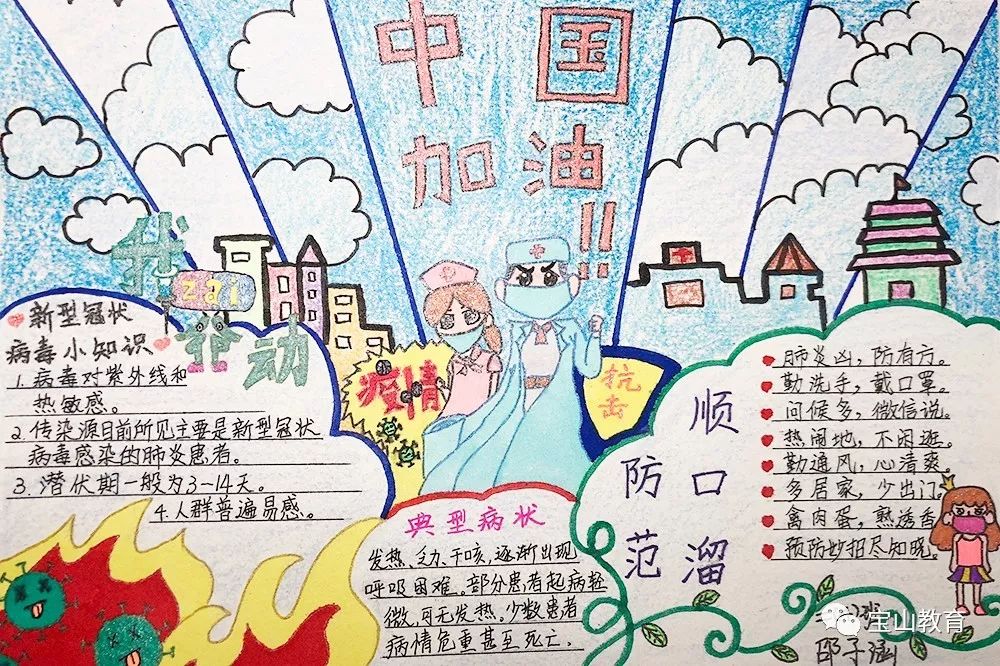 中国
加油!!
我
zai
行动
新型冠状
病毒小知识
1.病毒对紫外线和
热敏感。
2.传染源目前所见主要是新型冠状
病毒感染的肺炎患者。
3.潜伏期一般为3-14天。
4.人群普遍易感。
疫情
抗击
典型病状
发热、乏力、干咳,逐渐出现
呼吸困难。部分患者起病轻
微,可无发热。少数患者
病情危重甚至死亡.
防范
顺口溜
肺炎凶,防有方。
勤洗手,戴口罩。
问候多,微信说。
热闹地,不闲逛。
勤通风,心清爽。
多居家,少出门。
禽肉蛋,熟透香。
预防妙招尽知晓。
宝山教育